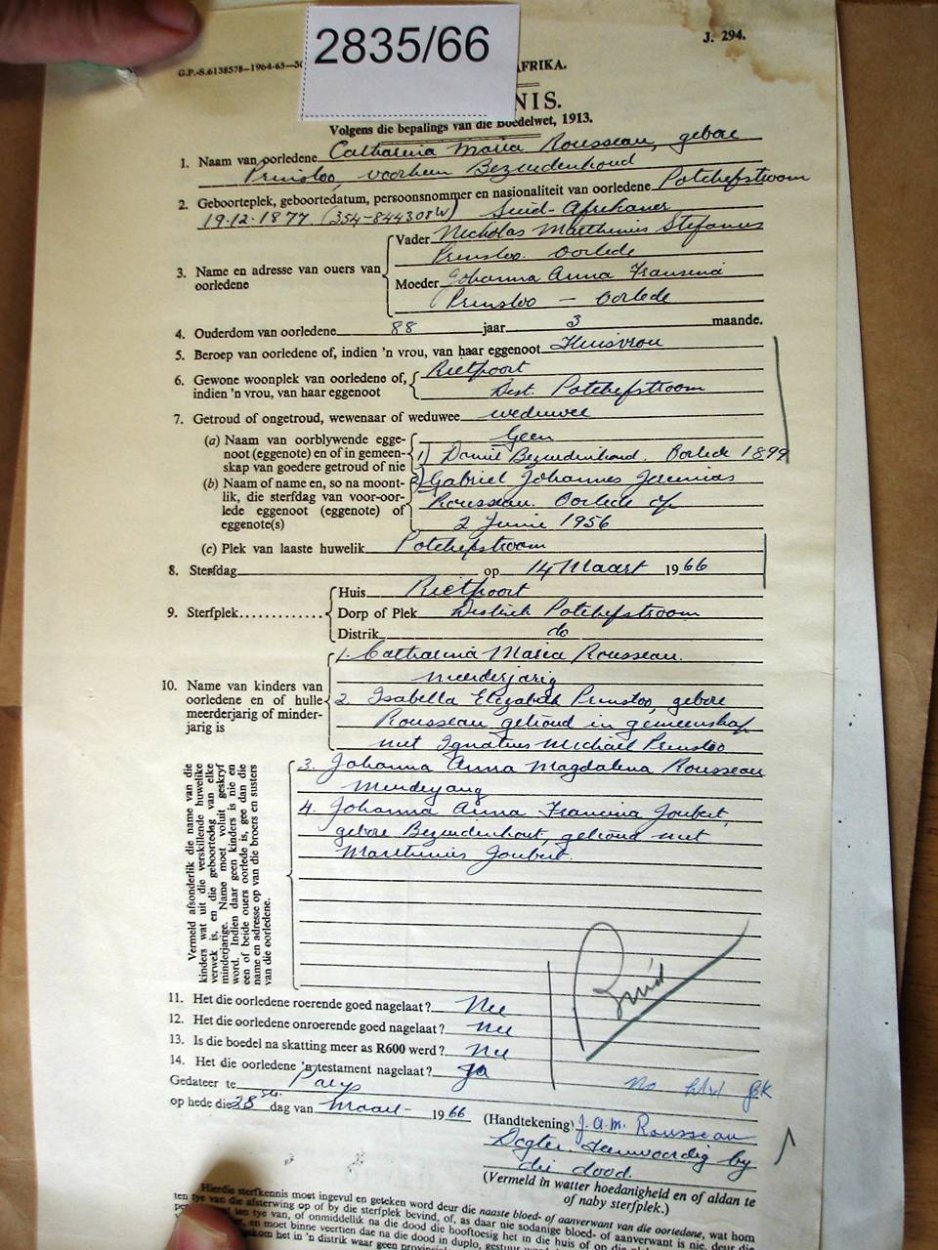 2835/66
J. 294.
G.P.-S.6138578—1964-65—50
AFRIKA.
NIS.
Volgens die bepalings van die Boedelwet, 1913.
1. Naam van oorledene Catharina Maria Rousseau, gebore
Prinsloo, voorheen Bezuidenhoud
2. Geboorteplek, geboortedatum, persoonsnommer en nasionaliteit van oorledene Potchefstroom
19.12.1877. (354-844308W) Suid-Afrikaner
3. Name en adresse van ouers van oorledene
Vader Nicholas Marthinus Stefanus
Prinsloo. Oorlede
Moeder Johanna Anna Fransina
Prinsloo — Oorlede
4. Ouderdom van oorledene 88 jaar 3 maande.
5. Beroep van oorledene of, indien 'n vrou, van haar eggenoot Huisvrou
6. Gewone woonplek van oorledene of, indien 'n vrou, van haar eggenoot
Rietpoort
Dist. Potchefstroom
7. Getroud of ongetroud, wewenaar of weduwee weduwee
(a) Naam van oorblywende eggenoot (eggenote) en of in gemeenskap van goedere getroud of nie
Geen
(b) Naam of name en, so na moontlik, die sterfdag van voor-oorlede eggenoot (eggenote) of eggenote(s)
1) Daniel Bezuidenhoud. Oorlede 1899
2) Gabriel Johannes Jeremias
Rousseau. Oorlede op
2 Junie 1956
(c) Plek van laaste huwelik Potchefstroom
8. Sterfdag op 14 Maart 1966
9. Sterfplek
Huis Rietpoort
Dorp of Plek Distrik Potchefstroom
Distrik do
10. Name van kinders van oorledene en of hulle meerderjarig of minderjarig is
1. Catharina Maria Rousseau.
meerderjarig
2. Isabella Elizabeth Prinsloo, gebore
Rousseau, getroud in gemeenskap
met Ignatius Michael Prinsloo
3. Johanna Anna Magdalena Rousseau
4. Johanna Anna Francina Joubert,
gebore Bezuidenhout, getroud met
Marthinus Joubert
Vermeld afsonderlik die name van die
kinders wat uit die verskillende huwelike
verwek is, en die geboortedag van elke
minderjarige. Name moet voluit geskryf
word. Indien daar geen kinders is nie en
een of beide ouers oorlede is, gee dan die
name en adresse op van die broers en susters
van die oorledene.
11. Het die oorledene roerende goed nagelaat? Nee
12. Het die oorledene onroerende goed nagelaat? nee
13. Is die boedel na skatting meer as R600 werd? nee
14. Het die oorledene 'n testament nagelaat? Ja
Gedateer te Parys
op hede die 28ste dag van Maart 1966
(Handtekening) J.A.M. Rousseau
Dogter. Teenwoordig by
die dood.
(Vermeld in watter hoedanigheid en of aldan te
of naby sterfplek.)
Hierdie sterfkennis moet ingevul en geteken word deur die naaste bloed- of aanverwant van die oorledene, wat hom
ten tye van die afsterwing op of by die sterfplek bevind, of, as daar nie sodanige bloed- of aanverwant is nie, deur die